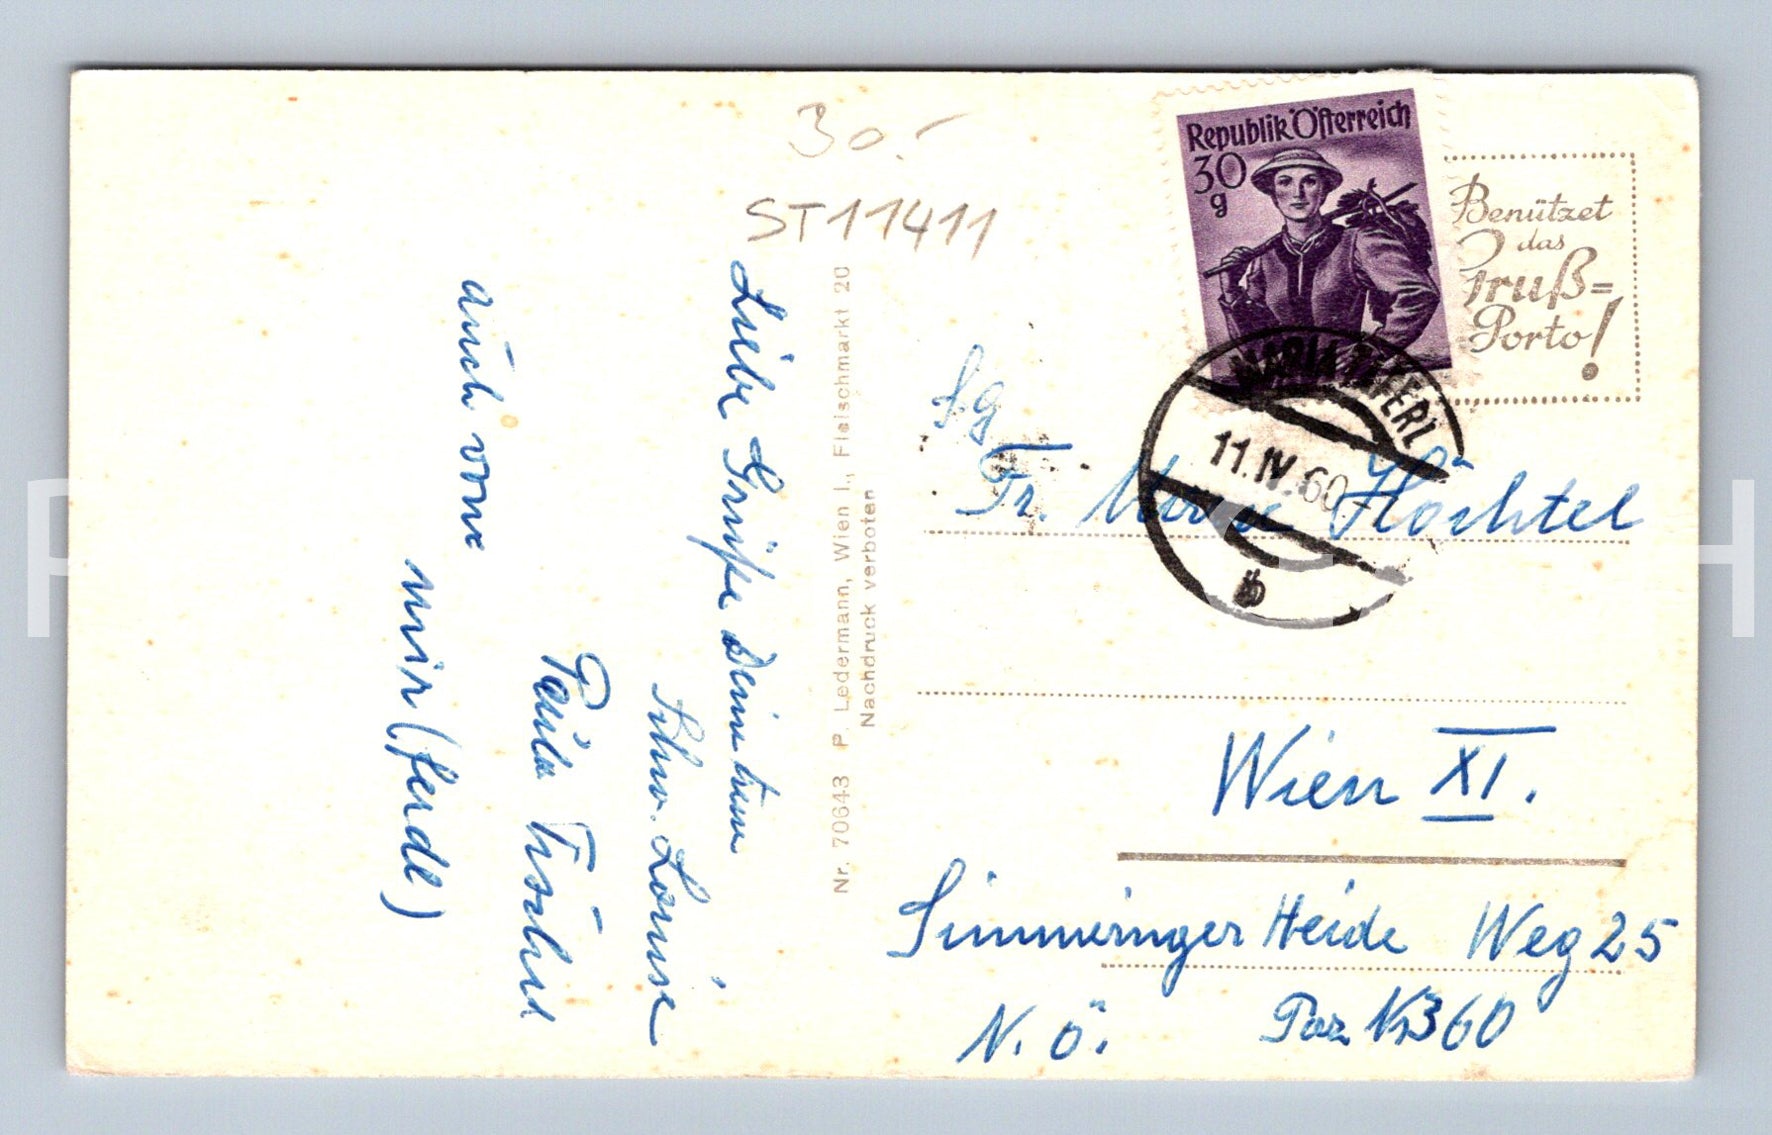 30.-
ST11411
Republik Österreich
30
g
Benützet
das
Gruß=
Porto!
MARIA TAFERL
11.IV.60
b
Fr. Höchtel
Wien XI.
Simmeringer Heide Weg 25
N. Ö. Par Nr 360
Nr. 70643 P. Ledermann, Wien I., Fleischmarkt 20
Nachdruck verboten
Liebe Grüße Deine treue
Schw. Louise
Paula
auch von
mir (ferdl)